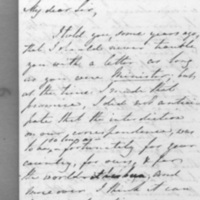 My dear Sir,
I told you, some years ago,
that I should never trouble
you with a letter as long
as you were Minister, but,
at the time I made that
promise, I did not antici-
pate that the interdiction
in our correspondence was
to be so long; fortunately for your
country, for ours, & for
the world and
moreover I think it can